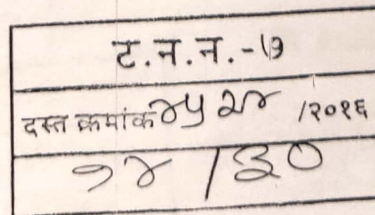 ट.न.न.-७
दस्त क्रमांक ४५२४ /२०१६
१४/३०